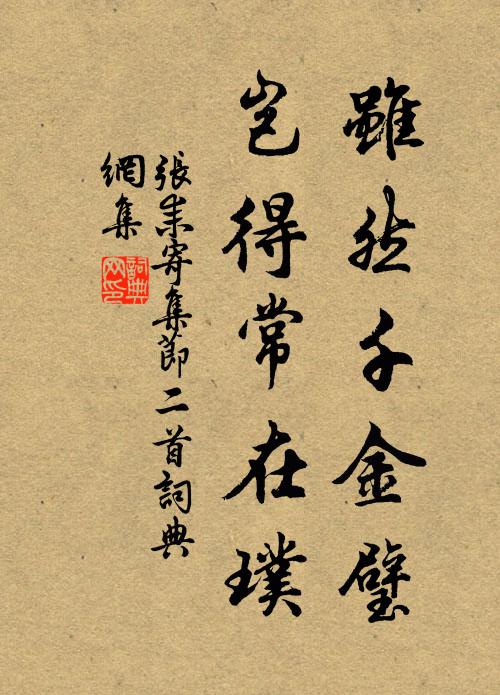 雖然千金璧
豈得常在璞
張耒寄集莭二首詞典
網集
詞典
网印